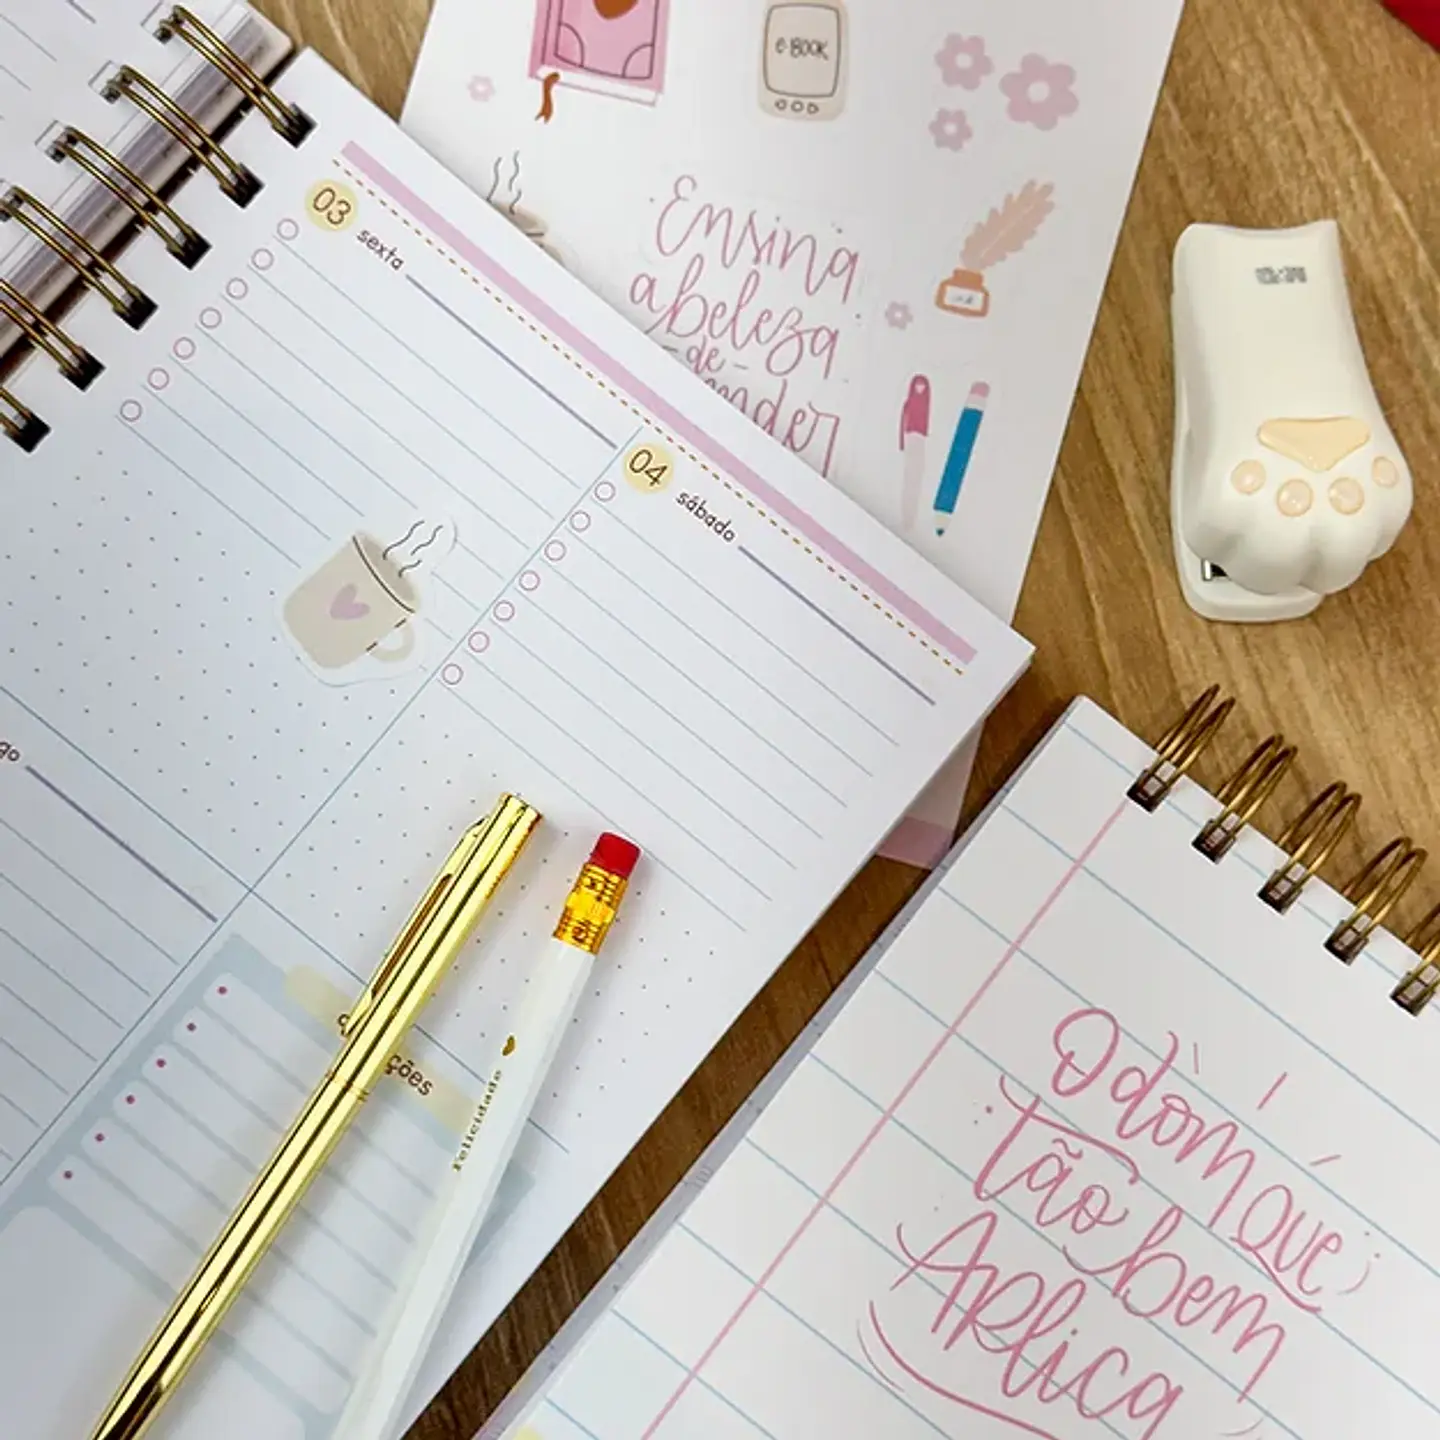 e-BOOK
Ensina
a beleza
- de -
03
sexta
04
sábado
ções
Felicidade
O dom
que
tão bem
Aplica